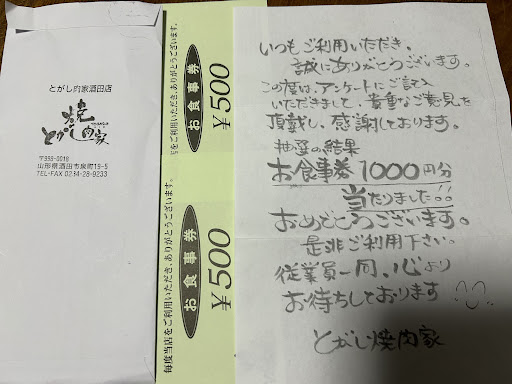 とがし肉家酒田店
焼
とがし肉家
〒998-0018
山形県酒田市泉町19-5
TEL・FAX 0234-28-9233
毎度当店をご利用いただき、ありがとうございます。
お食事券
¥500
をご利用いただき、ありがとうございます。
お食事券
¥500
いつもご利用いただき、
誠にありがとうございます。
この度は、アンケートにご記入
いただきまして、貴重なご意見を
頂戴し、感謝しております。
抽選の結果
お食事券1000円分
当たりました!!
おめでとうございます。
是非ご利用下さい。
従業員一同、心より
お待ちしております
とがし焼肉家